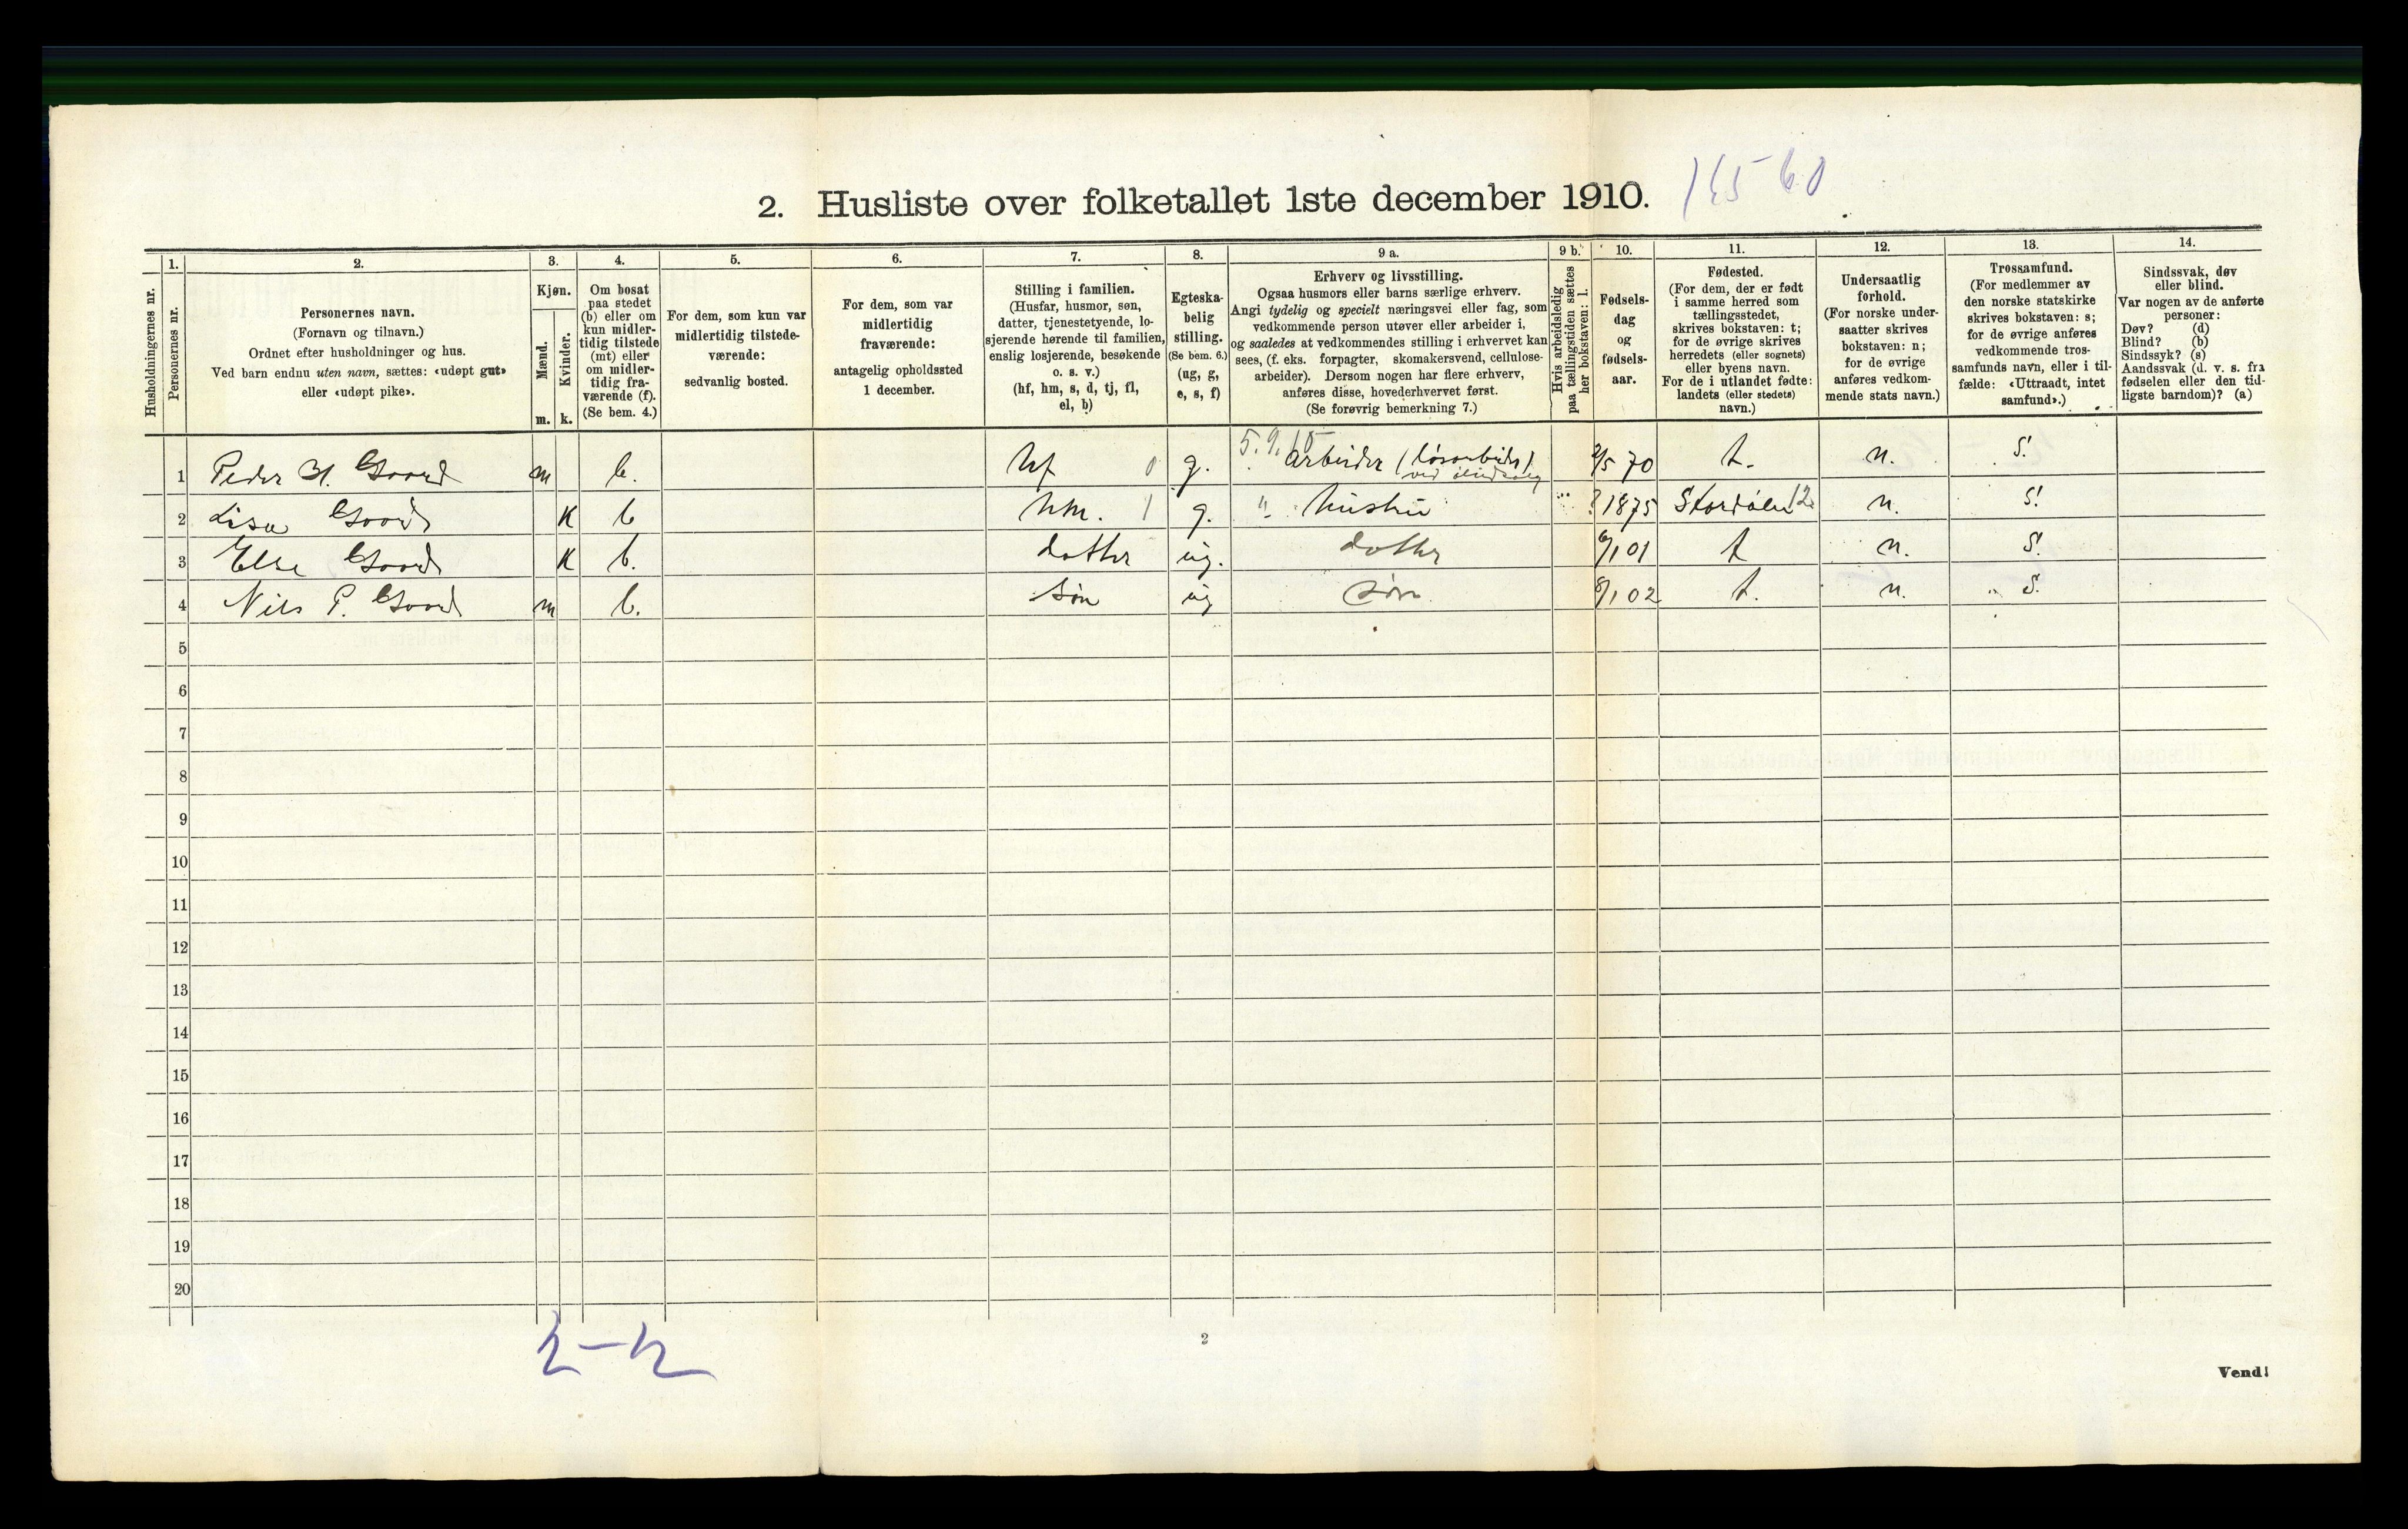 2. Husliste over folketallet 1ste december 1910.
Husholdningernes nr.
1.
Personernes nr.
2.
Personernes navn.
(Fornavn og tilnavn.)
Ordnet efter husholdninger og hus.
Ved barn endnu uten navn, sættes: «udøpt gut»
eller «udøpt pike».
3.
Kjøn.
Mænd.
Kvinder.
m. k.
4.
Om bosat
paa stedet
(b) eller om
kun midler-
tidig tilstede
(mt) eller
om midler-
tidig fra-
værende (f).
(Se bem. 4.)
5.
For dem, som kun var
midlertidig tilstede-
værende:
sedvanlig bosted.
6.
For dem, som var
midlertidig
fraværende:
antagelig opholdssted
1 december.
7.
Stilling i familien.
(Husfar, husmor, søn,
datter, tjenestetyende, lo-
sjerende hørende til familien,
enslig losjerende, besøkende
o. s. v.)
(hf, hm, s, d, tj, fl,
el, b)
8.
Egteska-
belig
stilling.
(Se bem. 6.)
(ug, g,
e, s, f)
9 a.
Erhverv og livsstilling.
Ogsaa husmors eller barns særlige erhverv.
Angi tydelig og specielt næringsvei eller fag, som
vedkommende person utøver eller arbeider i,
og saaledes at vedkommendes stilling i erhvervet kan
sees, (f. eks. forpagter, skomakersvend, cellulose-
arbeider). Dersom nogen har flere erhverv,
anføres disse, hovederhvervet først.
(Se forøvrig bemerkning 7.)
9 b.
Hvis arbeidsledig
paa tællingstiden sættes
her bokstaven: l.
10.
Fødsels-
dag
og
fødsels-
aar.
11.
Fødested.
(For dem, der er født
i samme herred som
tællingsstedet,
skrives bokstaven: t;
for de øvrige skrives
herredets (eller sognets)
eller byens navn.
For de i utlandet fødte:
landets (eller stedets)
navn.)
12.
Undersaatlig
forhold.
(For norske under-
saatter skrives
bokstaven: n;
for de øvrige
anføres vedkom-
mende stats navn.)
13.
Trossamfund.
(For medlemmer av
den norske statskirke
skrives bokstaven: s;
for de øvrige anføres
vedkommende tros-
samfunds navn, eller i til-
fælde: «Uttraadt, intet
samfund».)
14.
Sindssvak, døv
eller blind.
Var nogen av de anførte
personer:
Døv? (d)
Blind? (b)
Sindssyk? (s)
Aandssvak (d. v. s. fra
fødselen eller den tid-
ligste barndom)? (a)
1 Peder H. m b. hf 0 g. Arbeider (løsarbeider) 2/5 70 t. n. S.
2 Lisa K b hm. 1 g. " hustru ? 1875 12 n. S.
3 Else K b. datter ug. datter 6/1 01 t n. S.
4 Nils P. m b. Søn ug Søn 8/1 02 t. n. S.
5
6
7
8
9
10
11
12
13
14
15
16
17
18
19
20
2-2
2
Vend!